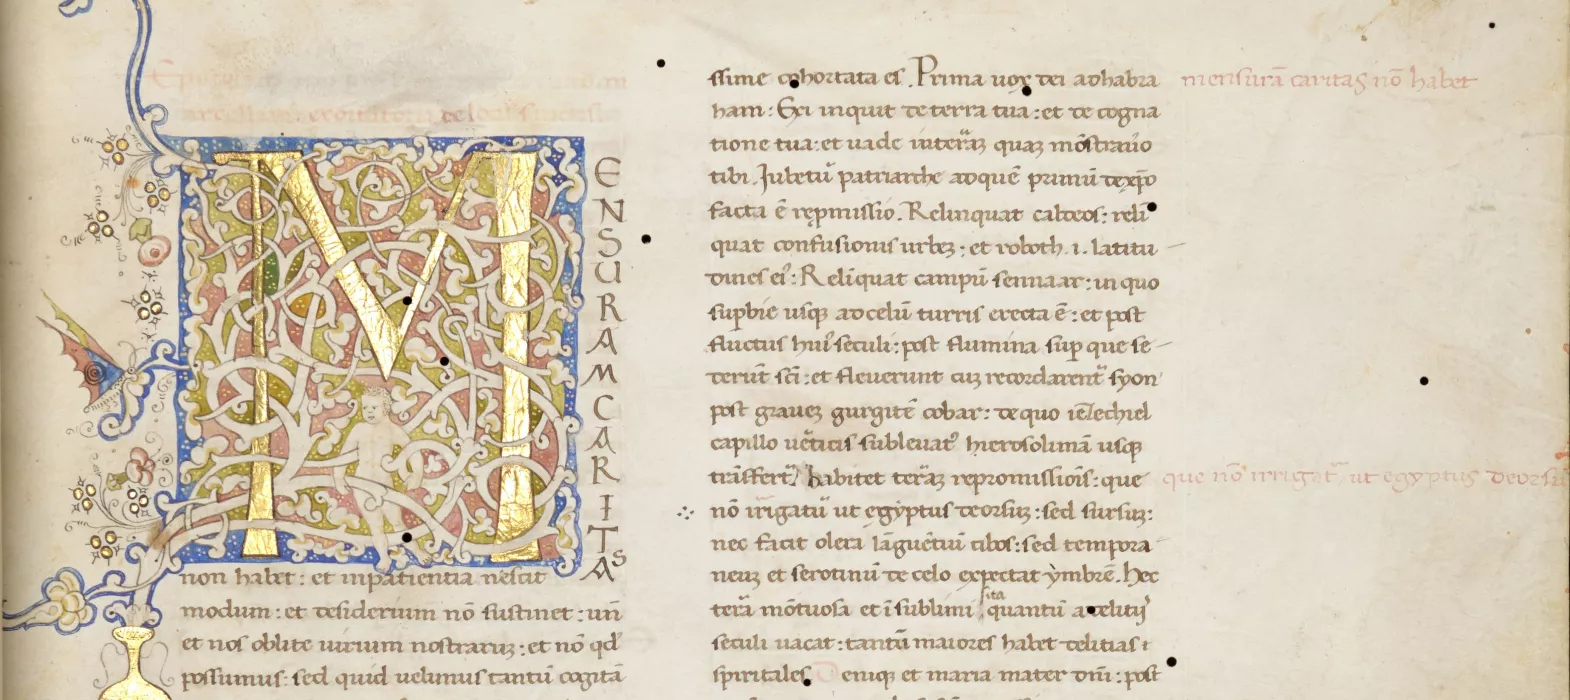 M
ENSURAM CARITAS
non habet: et inpatientia nescit
modum: et desiderium nō sustinet: un̄
et nos oblite uirium nostraruꝫ: et nō qd̓
possumus: sed quid uelimus tantū cogitā
ssime cohortata es̓. Prima uox dei ad habra
ham: Exi inquit de terra tua: et de cogna
tione tua: et uade in terāꝫ quaꝫ mōstrauo
tibi. Jubetu᷑ patriarche adquē primū dexp̄o
facta ē rep̱missio. Relinquat caldeos: reli
quat confusionis urbeꝫ: et roboth .i. latitu
dines ei᷒: Reliquat campū sennaar: in quo
sup̱bie usqꝫ ad celū turris erecta ē: et post
fluctus hui᷒ seculi: post flumina sup̱ que se
derūt sci̅: et fleuerunt cuꝫ recordarent᷑ syon
post graueꝫ gurgitē cobar: de quo ieꝫechiel
capillo uērticis subleuat᷒ hierosolimā usqꝫ
trāsfert᷑. habitet terāꝫ repromissiōis: que
nō irigatu᷑ ut egyptus deorsuꝫ: sed sursuꝫ:
nec facit olera lāguētiū cibos: sed tempora
neuꝫ et serotinū de celo expectat ymbrē. Hec
terā mōtuosa et ī sublimi sita quantū a delitijs
seculi uacat: tantū maiores habet delitias
spiritales. Deniqꝫ et maria mater dn̄i: post
mensurā caritas nō habet
que nō irrigat᷑ ut egyptus deorsū